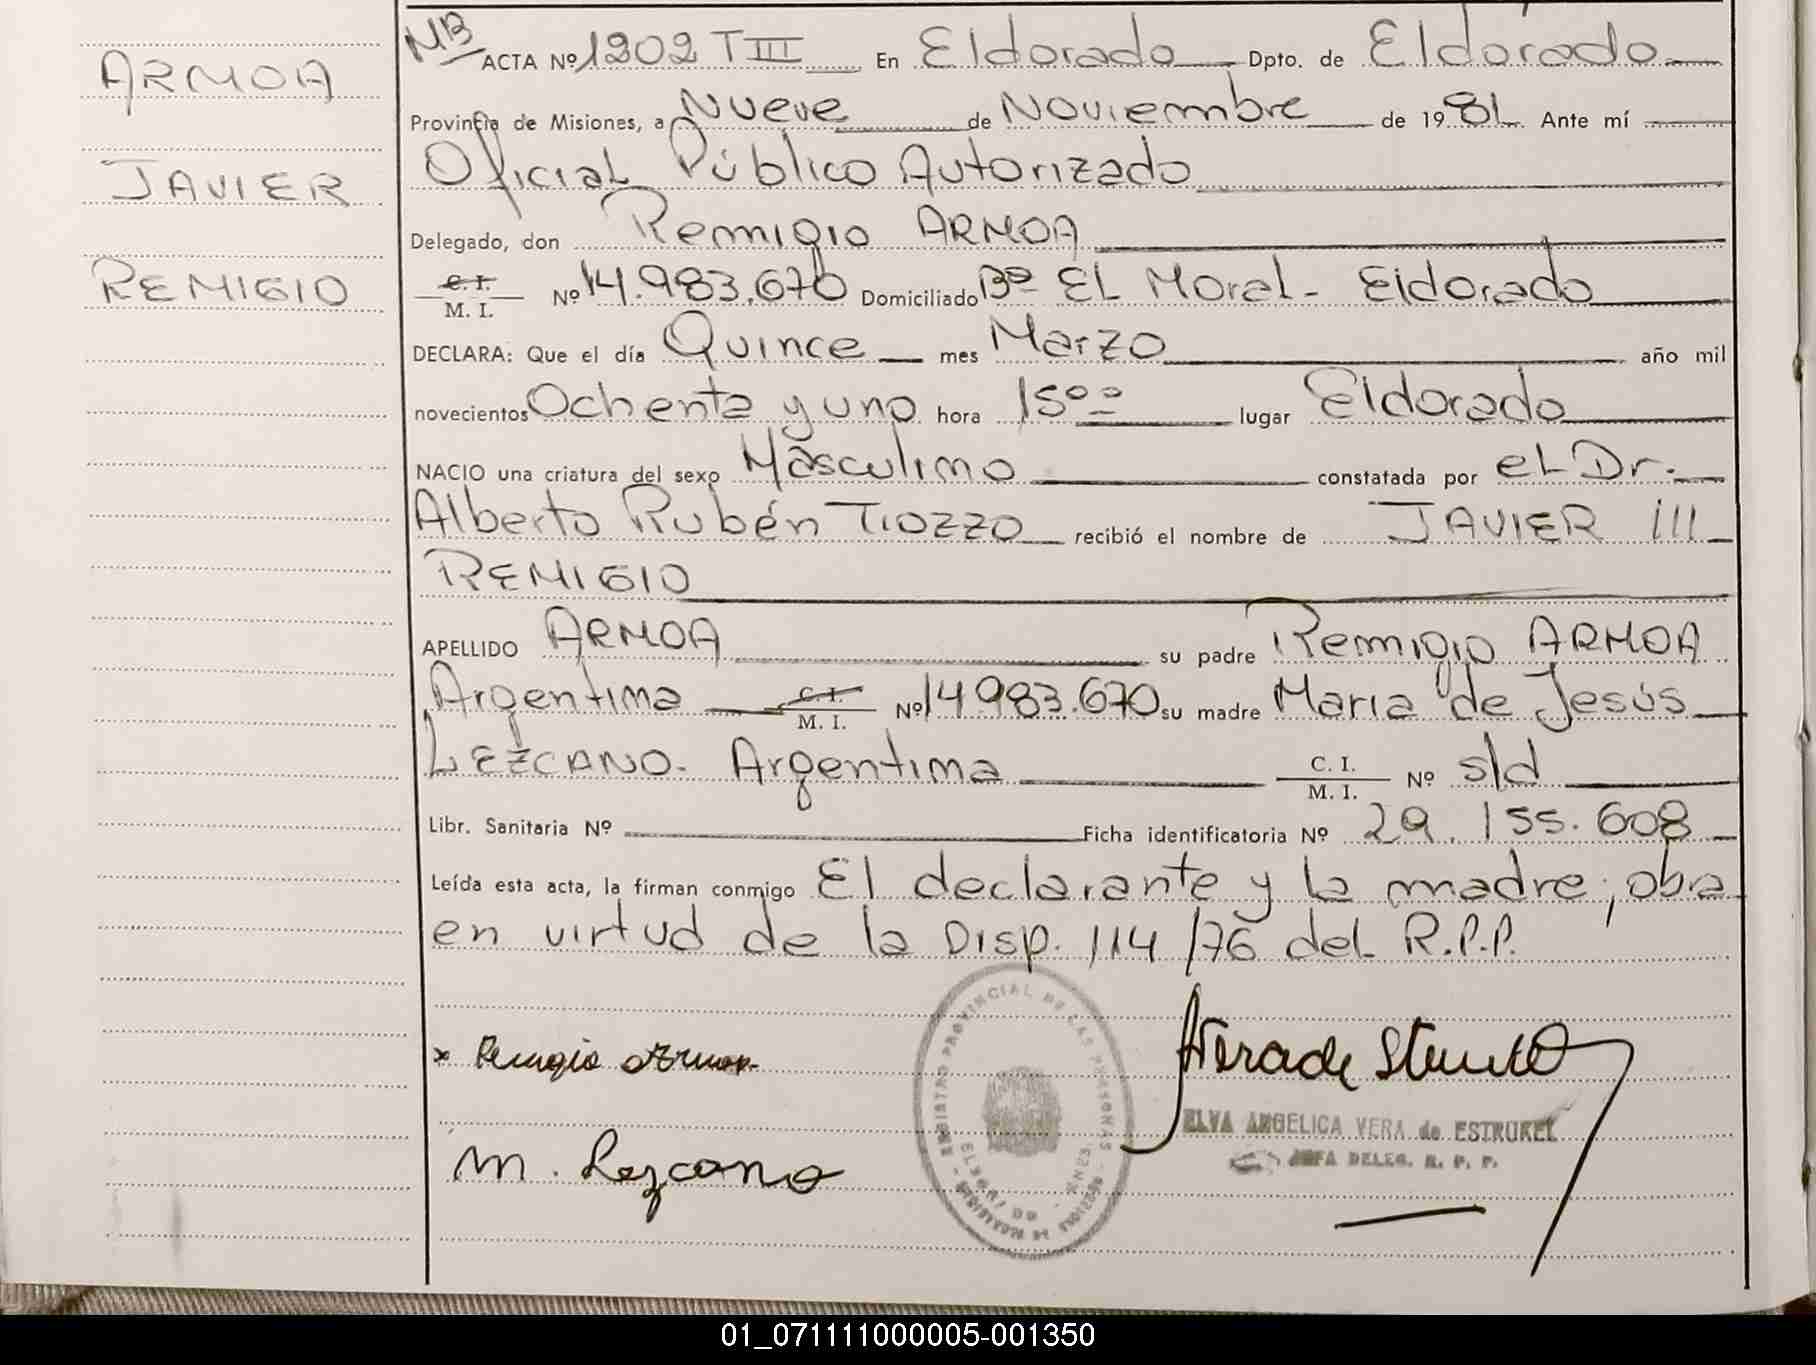 ARMOA
JAVIER
REMIGIO
NB ACTA Nº 1202 T III En Eldorado Dpto. de Eldorado
Provincia de Misiones, a Nueve de Noviembre de 1981 Ante mí
Oficial Público Autorizado
Delegado, don Remigio ARMOA
C. I.
M. I. Nº 14.983.670 Domiciliado Bº EL Moral - Eldorado
DECLARA: Que el día Quince mes Marzo año mil
novecientos Ochenta y uno hora 15ºº lugar Eldorado
NACIO una criatura del sexo Masculino constatada por el Dr.
Alberto Rubén Tiozzo recibió el nombre de JAVIER III
REMIGIO
APELLIDO ARMOA su padre Remigio ARMOA
Argentina C. I.
M. I. Nº 14983.670 su madre Maria de Jesús
LEZCANO - Argentina C. I.
M. I. Nº s/d
Libr. Sanitaria Nº Ficha identificatoria Nº 29.155.608
Leída esta acta, la firman conmigo El declarante y la madre; obra
en virtud de la Disp. 114/76 del R.P.P.
x Remigio Armoa
M. Lezcano
REGISTRO PROVINCIAL DE LAS PERSONAS
ELDORADO - MNES.
ELVA ANGELICA VERA de ESTRUKEL
JEFA DELEG. R. P. P.
01_071111000005-001350